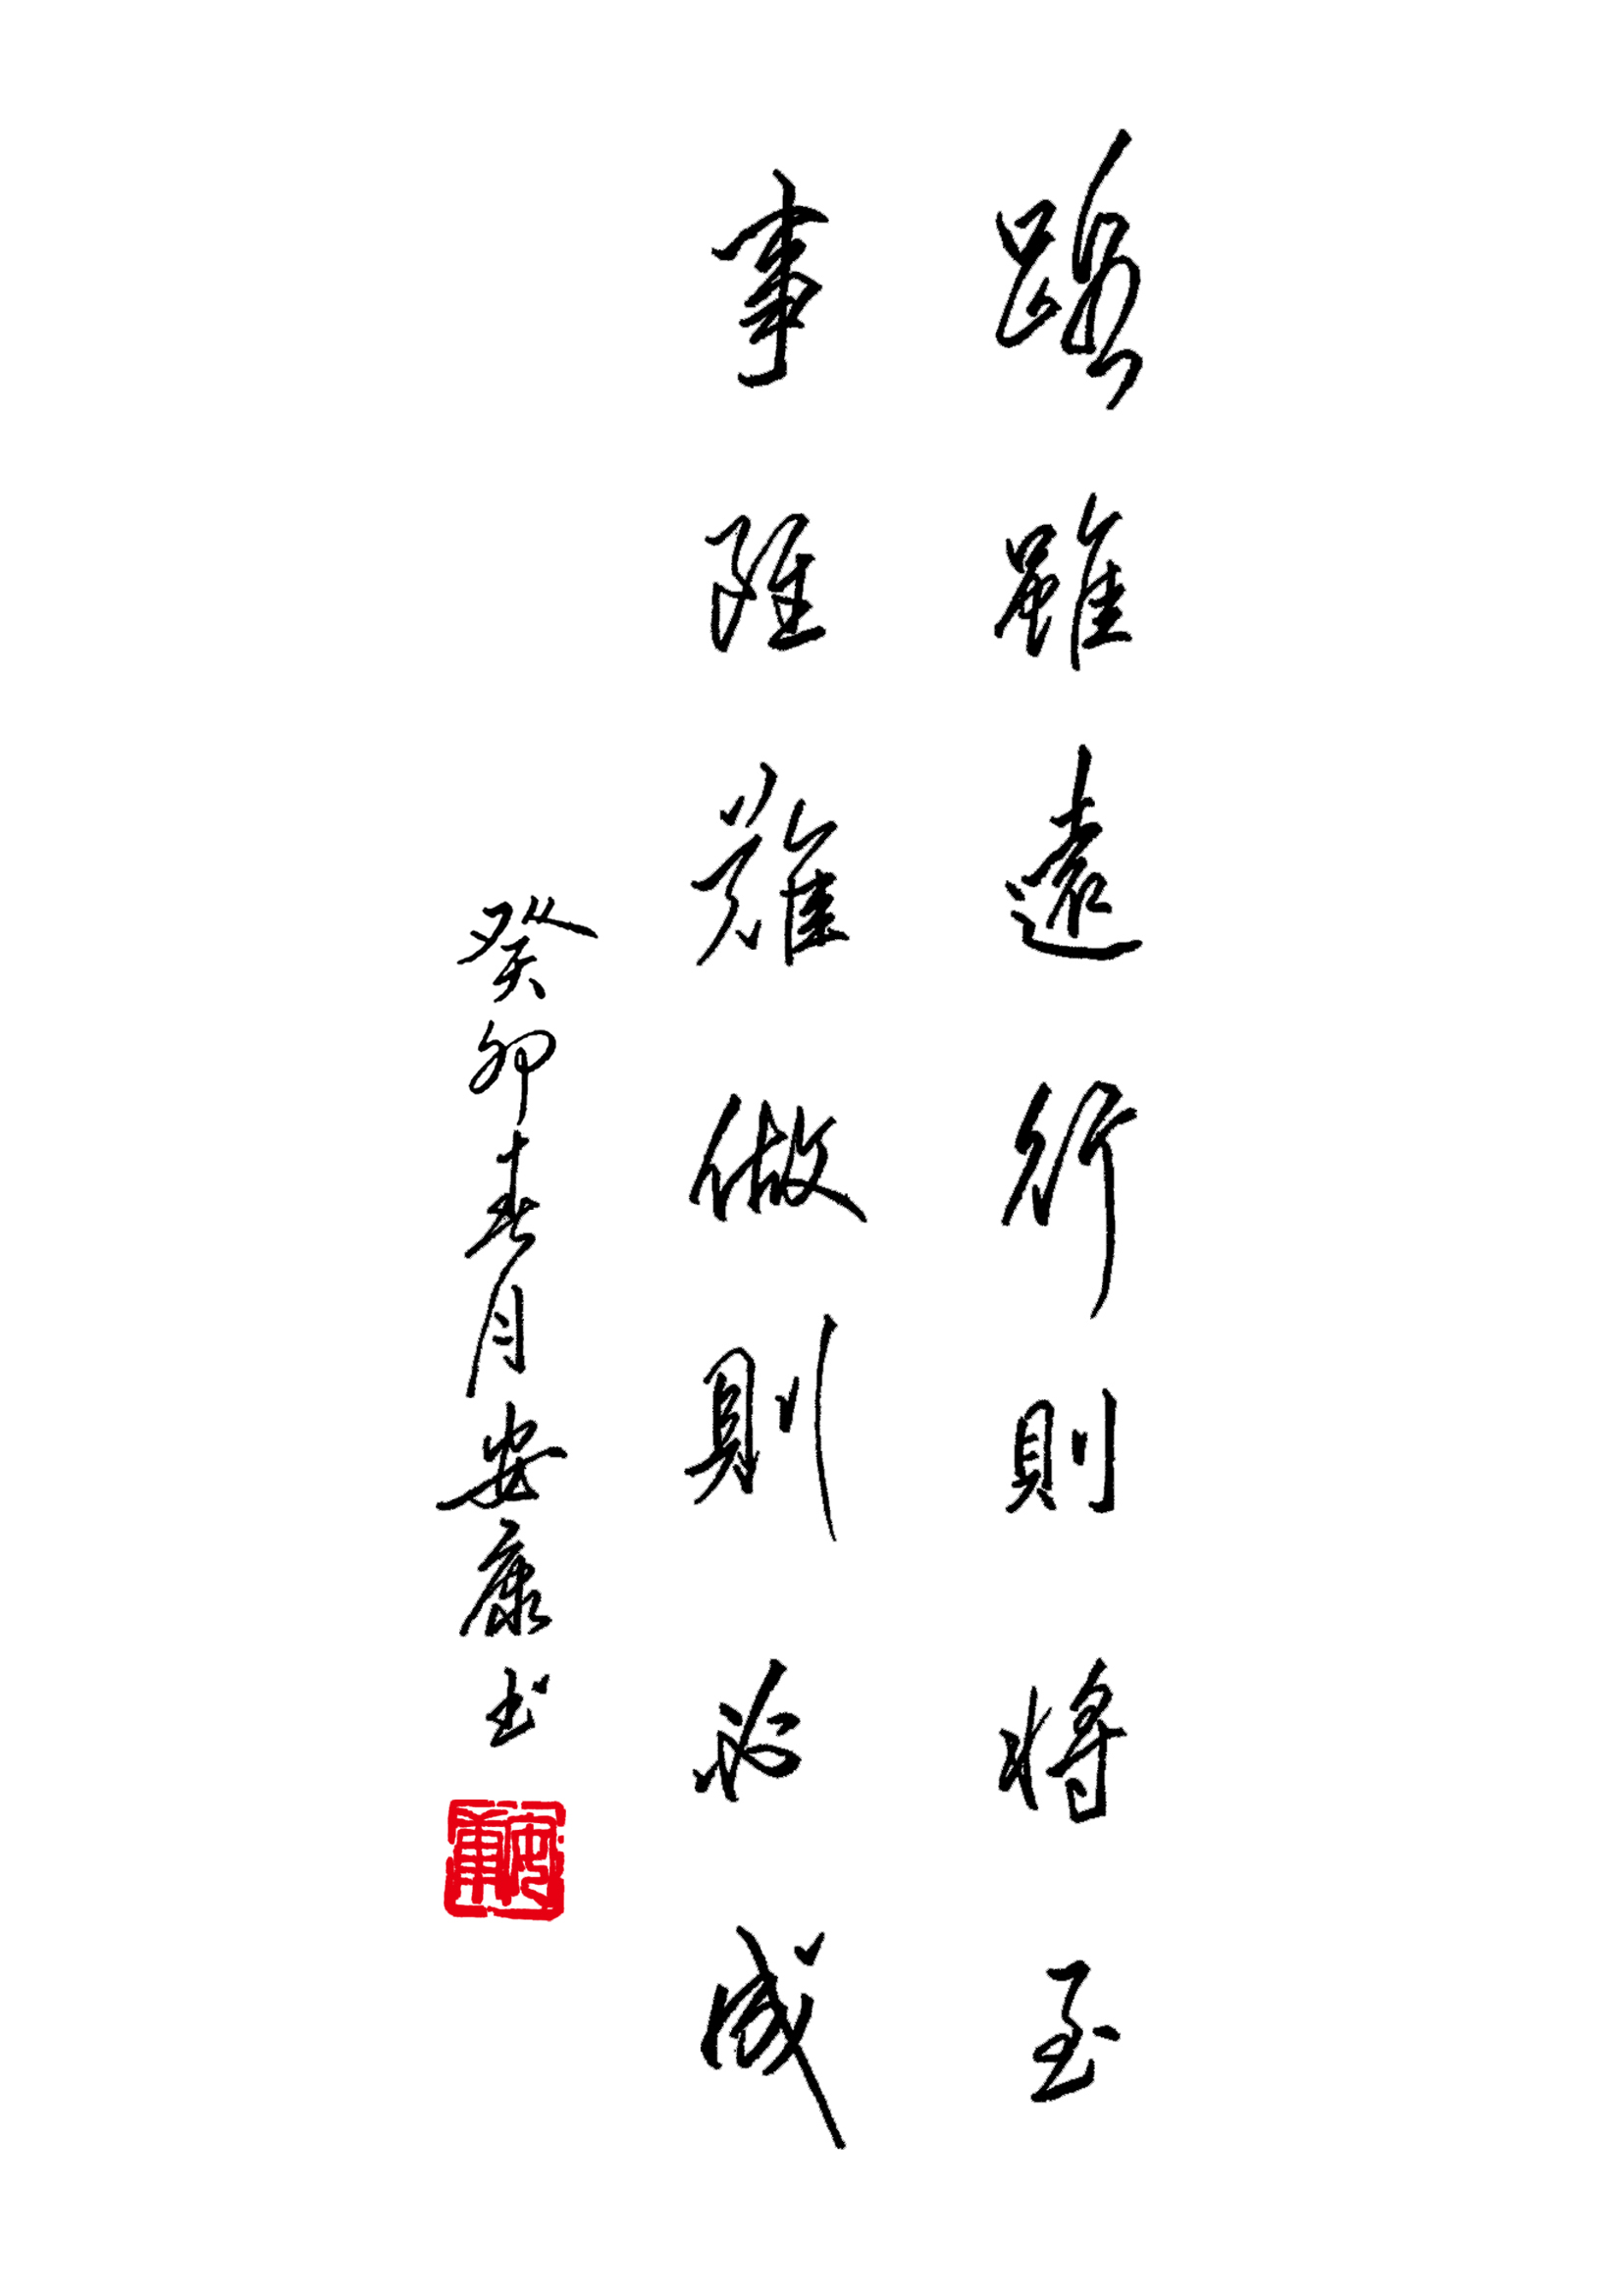 路雖遠行則將至
事雖難做則必成
癸卯春月安康书